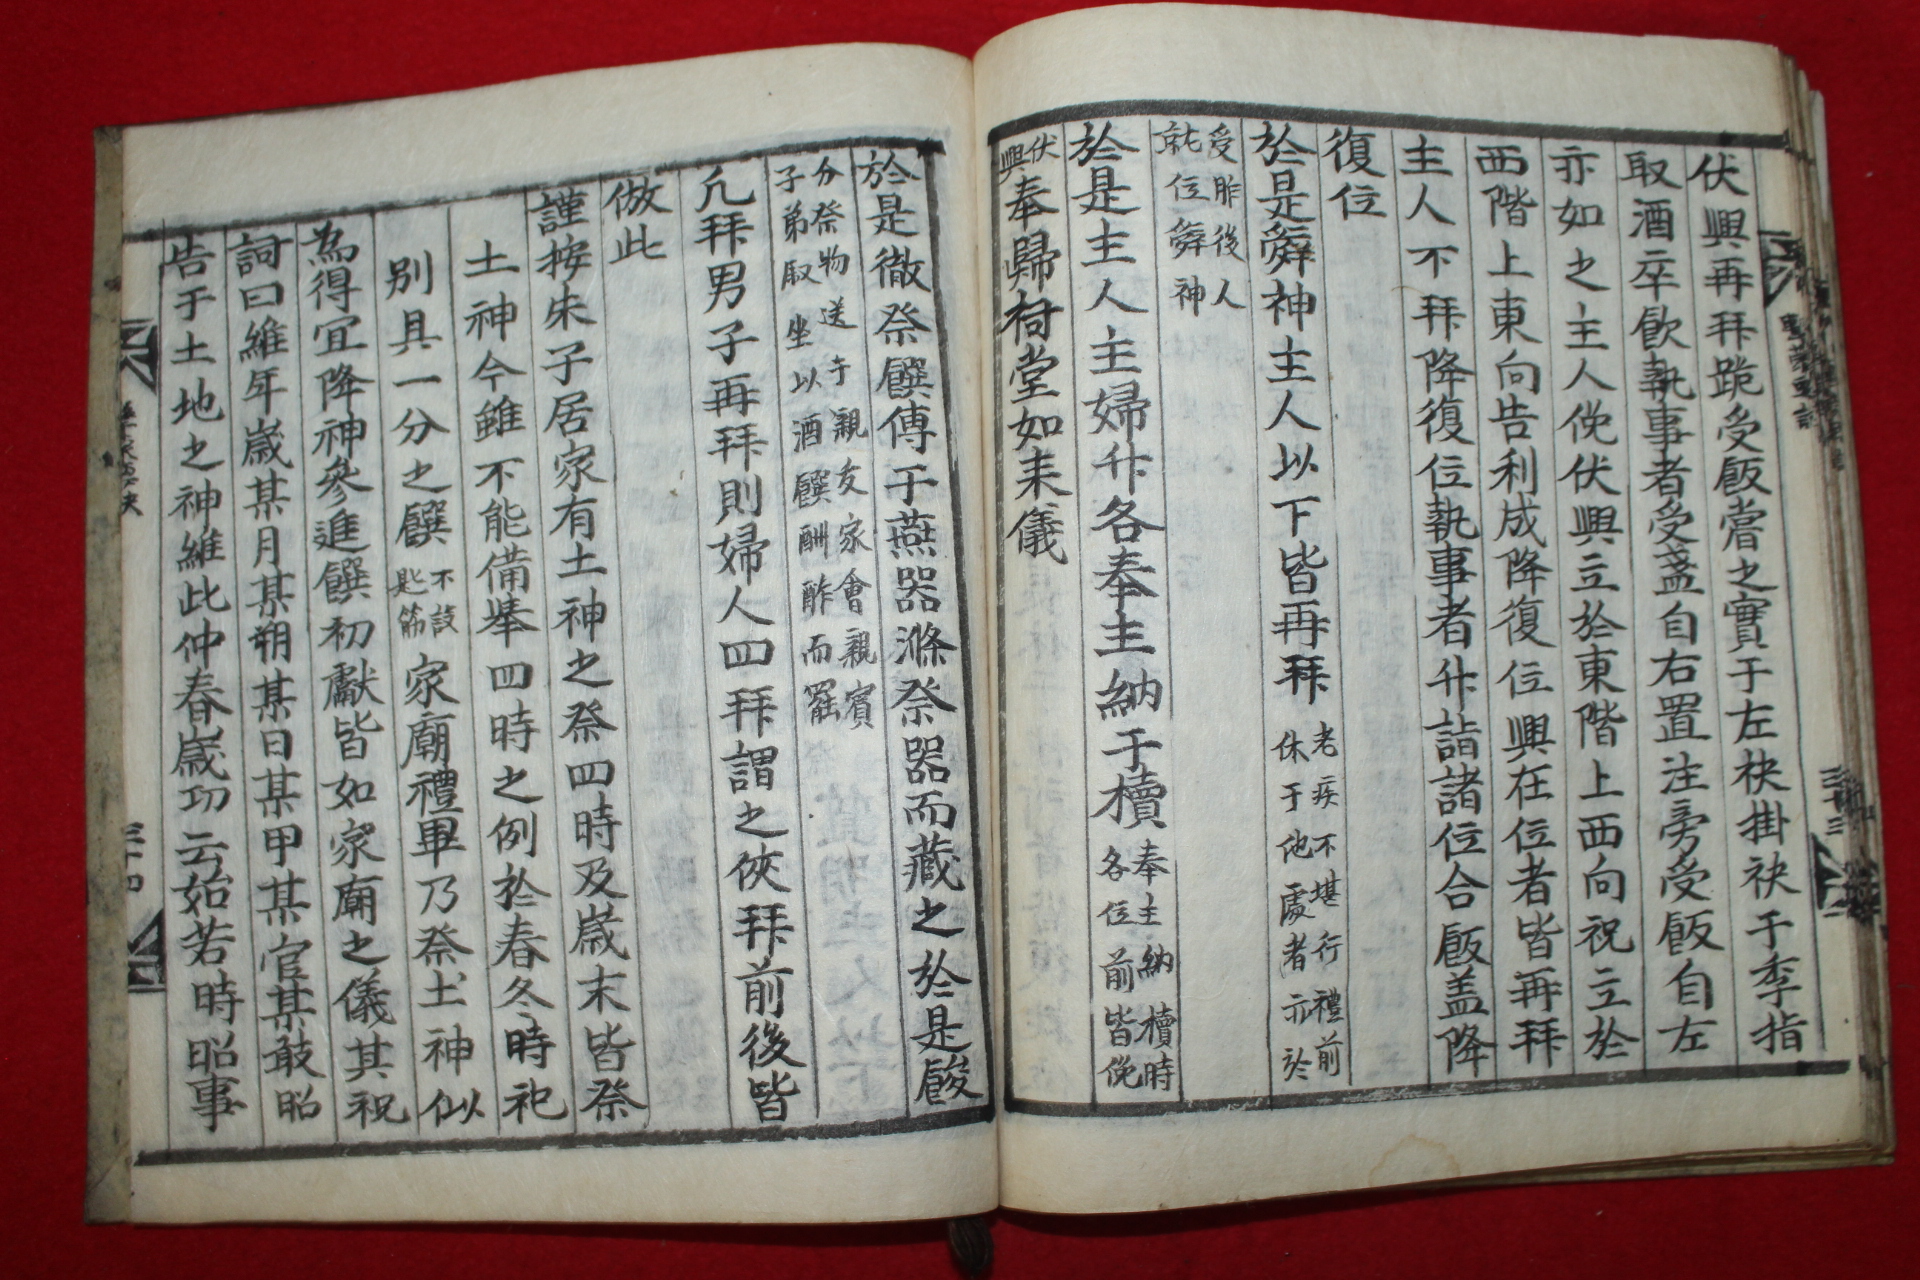 伏興再拜跪受飯嘗之實于左袂掛袂于季指
取酒卒飮執事者受盞自右置注旁受飯自左
亦如之主人俛伏興立於東階上西向祝立於
西階上東向告利成降復位興在位者皆再拜
主人不拜降復位執事者升詣諸位合飯盖降
復位
於是辭神主人以下皆再拜老疾不堪行禮前
休于他處者亦於
受胙後人
就位辭神
於是主人主婦升各奉主納于櫝奉主納櫝時
各位前皆俛
伏
興奉歸祠堂如来儀
於是徹祭饌傳于燕器滌祭器而藏之於是餕
分祭物送于親友家會親賓
子弟取坐以酒饌酬酢而罷
凡拜男子再拜則婦人四拜謂之俠拜前後皆
倣此
謹按朱子居家有土神之祭四時及歲末皆祭
土神今雖不能備擧四時之例於春冬時祀
別具一分之饌不設
匙筯家廟禮畢乃祭土神似
爲得宜降神參進饌初獻皆如家廟之儀其祝
詞曰維年歲某月某朔某日某甲某官某敢昭
告于土地之神維此仲春歲功云始若時昭事
三十四